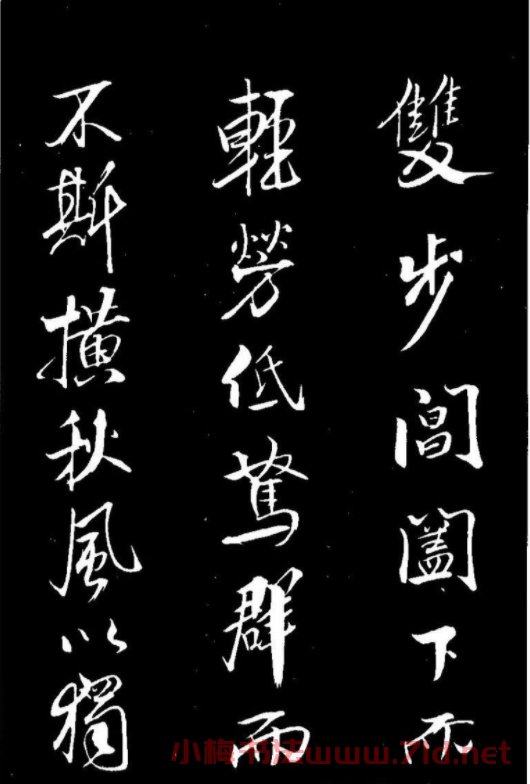 雙步閶闔下不
輕勞低駑群而
不斯橫秋風以獨
小梅书法www.71d.net